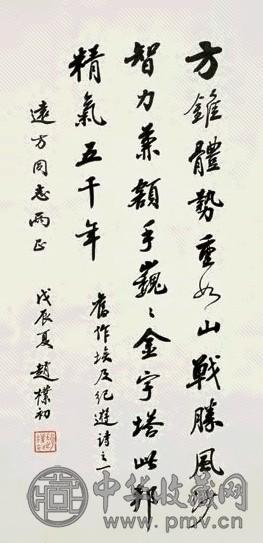 方錐體勢重如山戰勝風沙
智力兼額手巍〻金字塔此邦
精氣五千年
舊作埃及紀遊詩之一
遠方同志兩正
戊辰夏趙樸初
中华收藏网
www.pmv.cn